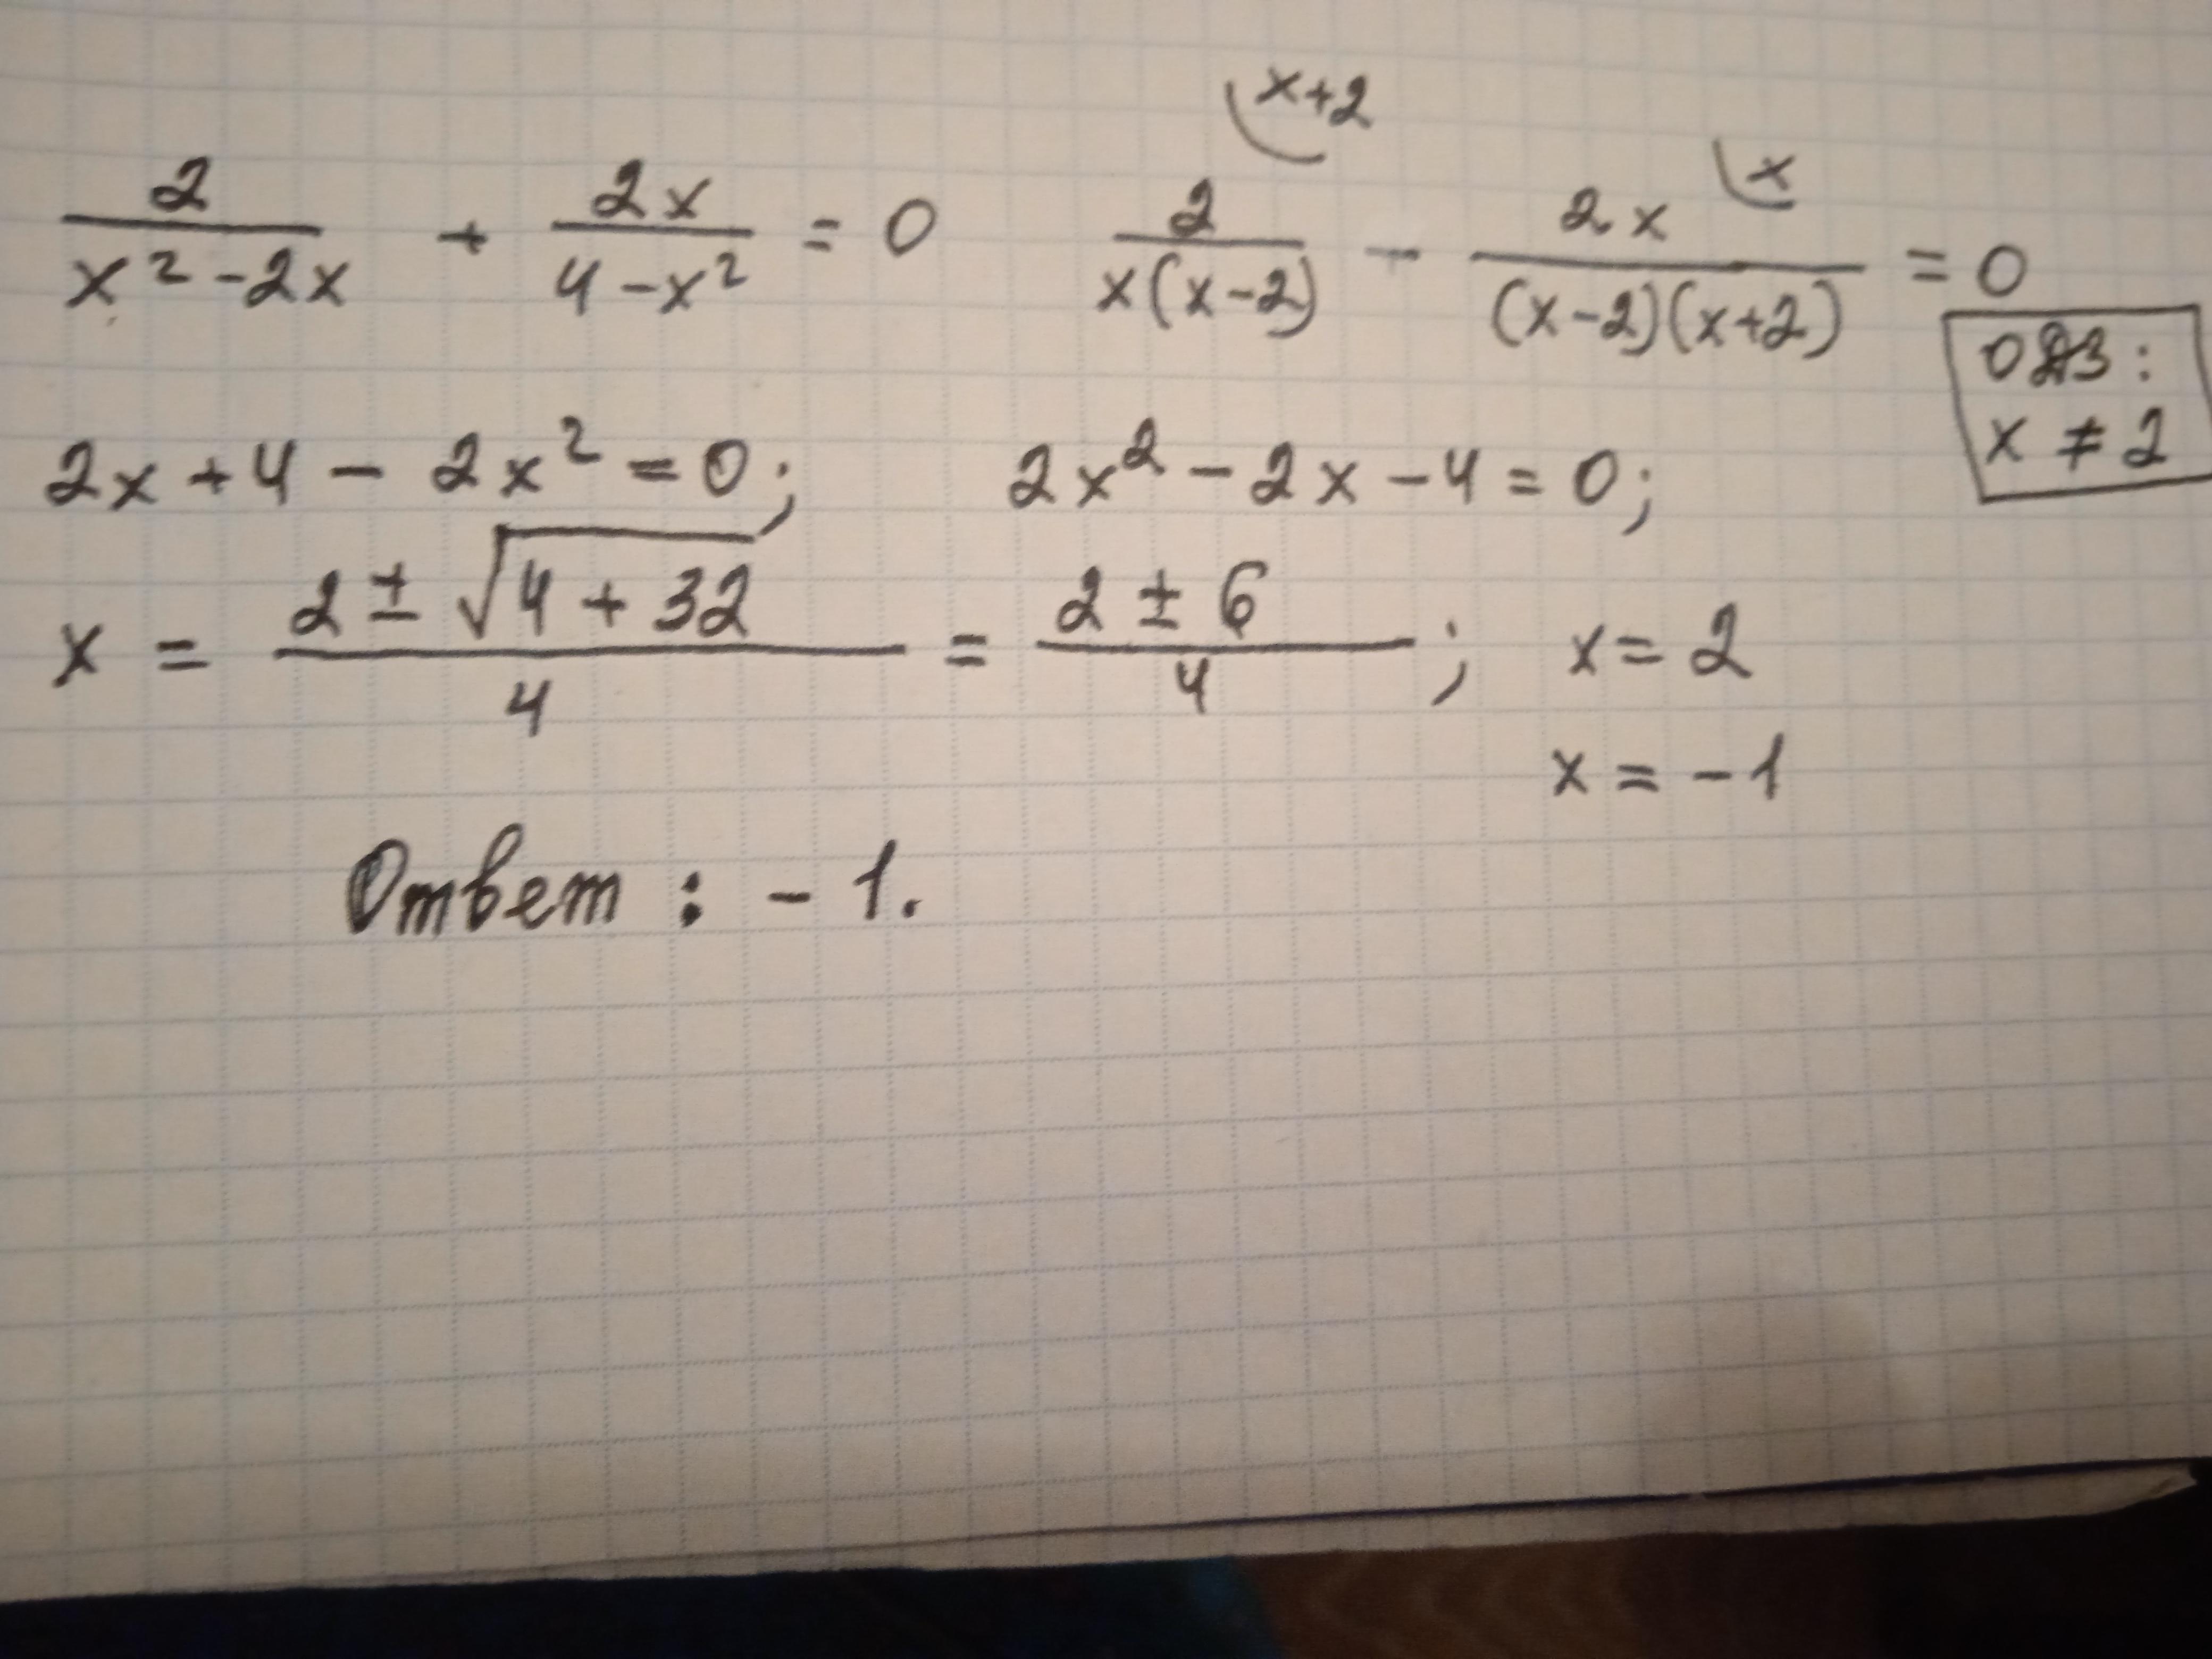 x+2
2/(x² - 2x) + 2x/(4 - x²) = 0   2/(x(x-2)) - 2x/((x-2)(x+2)) = 0   x
ОДЗ:
x ≠ 2
2x + 4 - 2x² = 0;   2x² - 2x - 4 = 0;
x = (2 ± √(4 + 32))/4 = (2 ± 6)/4;   x = 2
x = -1
Ответ: -1.